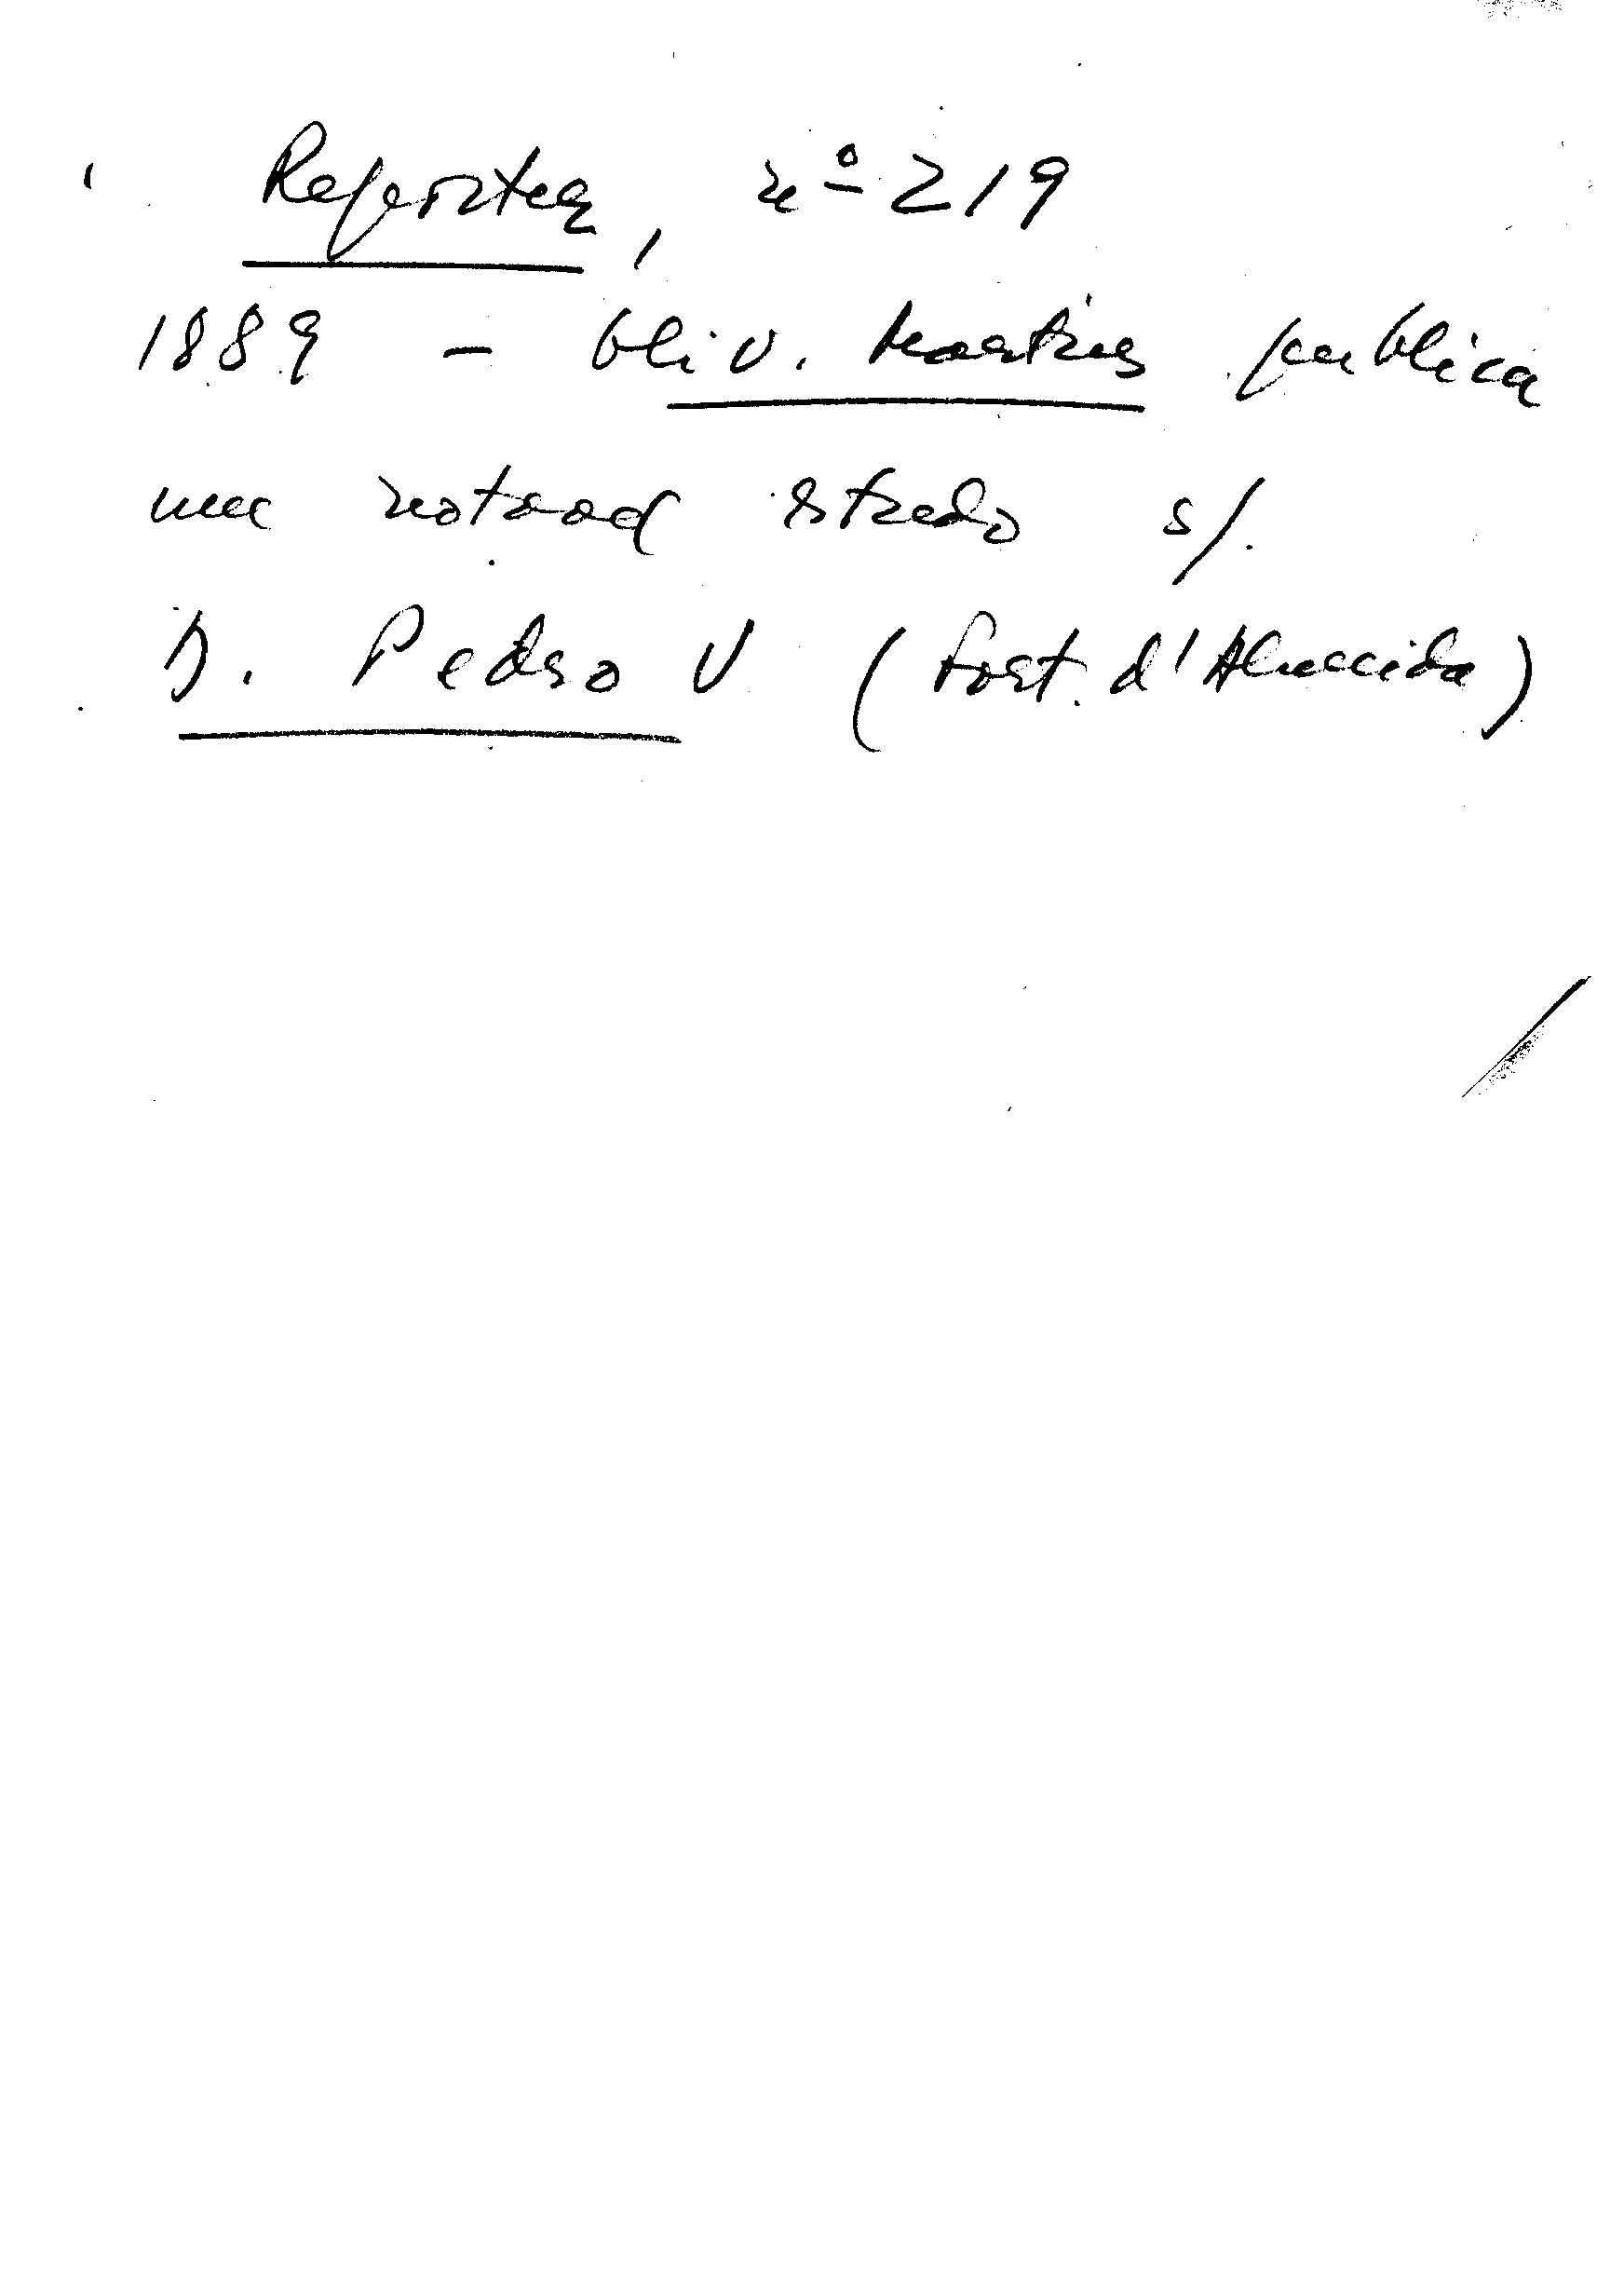 Reporter, nº 219
1889 - Oliv. Martins publica
um notável estudo s/.
D. Pedro V (Fort. d'Almeida)